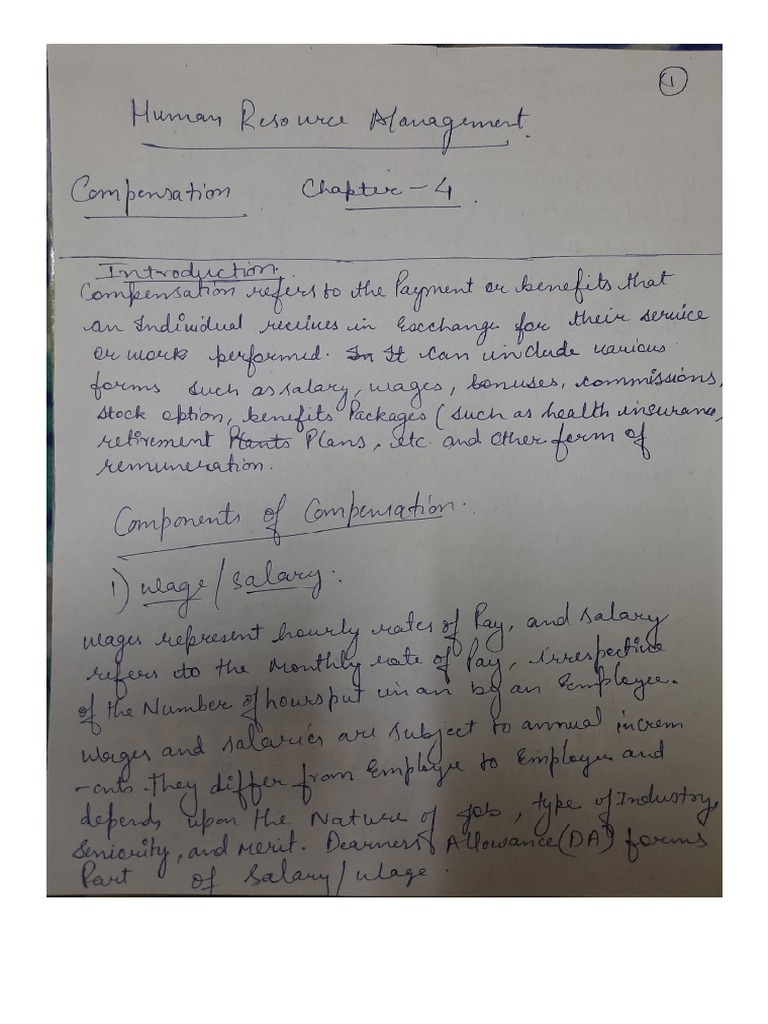 1
Human Resource Management.
Compensation. Chapter - 4.
Introduction.
Compensation refers to the Payment or benefits that
an Individual receives in Exchange for their service
or work performed. In It can include various
forms such as salary, wages, bonuses, commissions,
stock option, benefits Packages (such as health insurance,
retirement Plants Plans, etc. and other form of
remuneration.
Components of Compensation.
1) wage/salary.
wages represent hourly rates of Pay, and salary
refers to the Monthly rate of Pay, irrespective
of the Number of hours put in an by an Employee.
wages and salaries are subject to annual increm
-ents. they differ from Employee to Employee and
depends upon the Nature of job, type of Industry,
Seniority, and merit. Dearness Allowance (DA) forms
Part of Salary/wage.